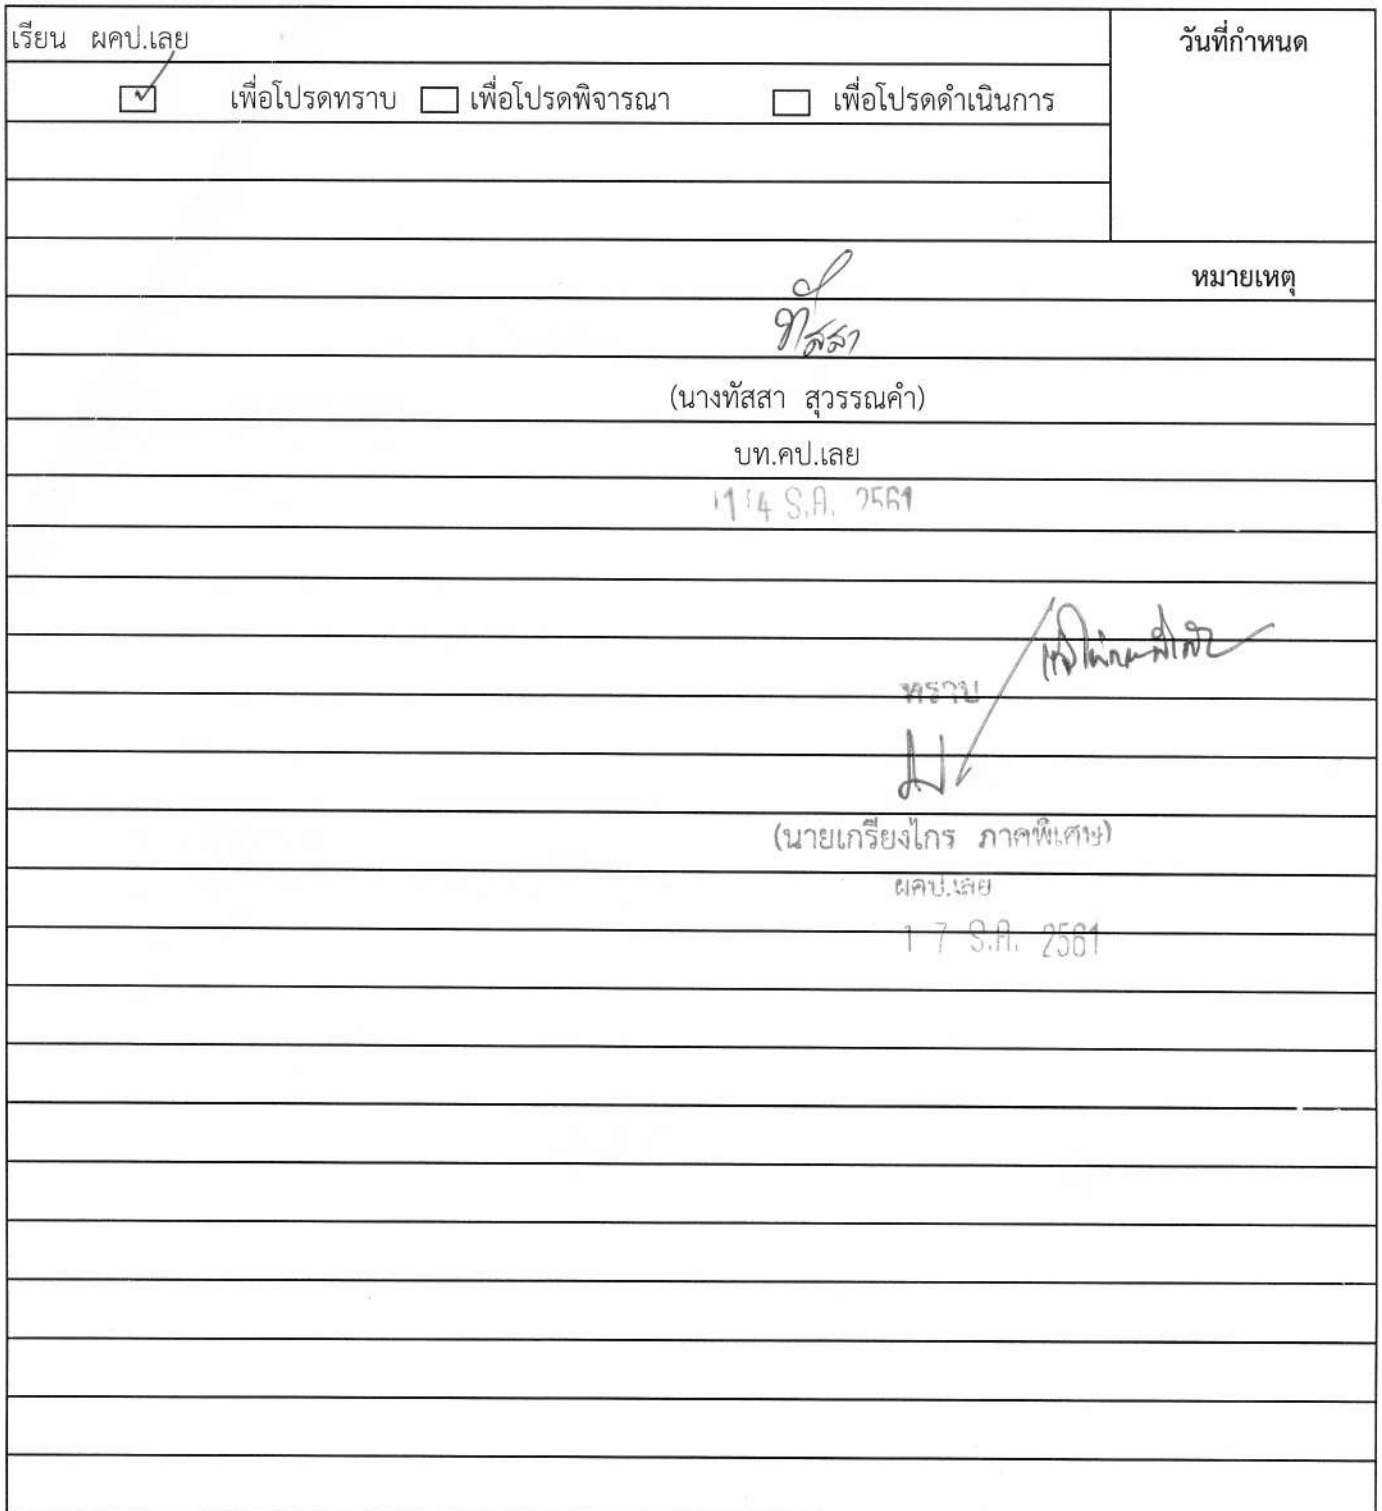 เรียน ผคป.เลย
วันที่กำหนด
เพื่อโปรดทราบ เพื่อโปรดพิจารณา เพื่อโปรดดำเนินการ
หมายเหตุ
ทัสสา
(นางทัสสา สุวรรณคำ)
บท.คป.เลย
14 ธ.ค. 2561
ทราบ
(นายเกรียงไกร ภาคพิเศษ)
ผคป.เลย
17 ธ.ค. 2561